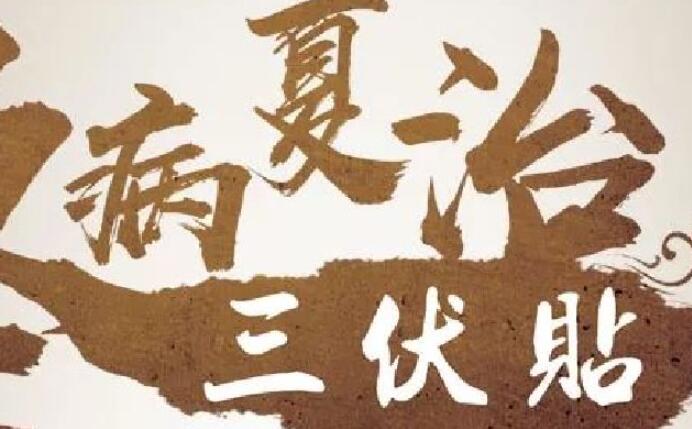 病夏治
三伏貼